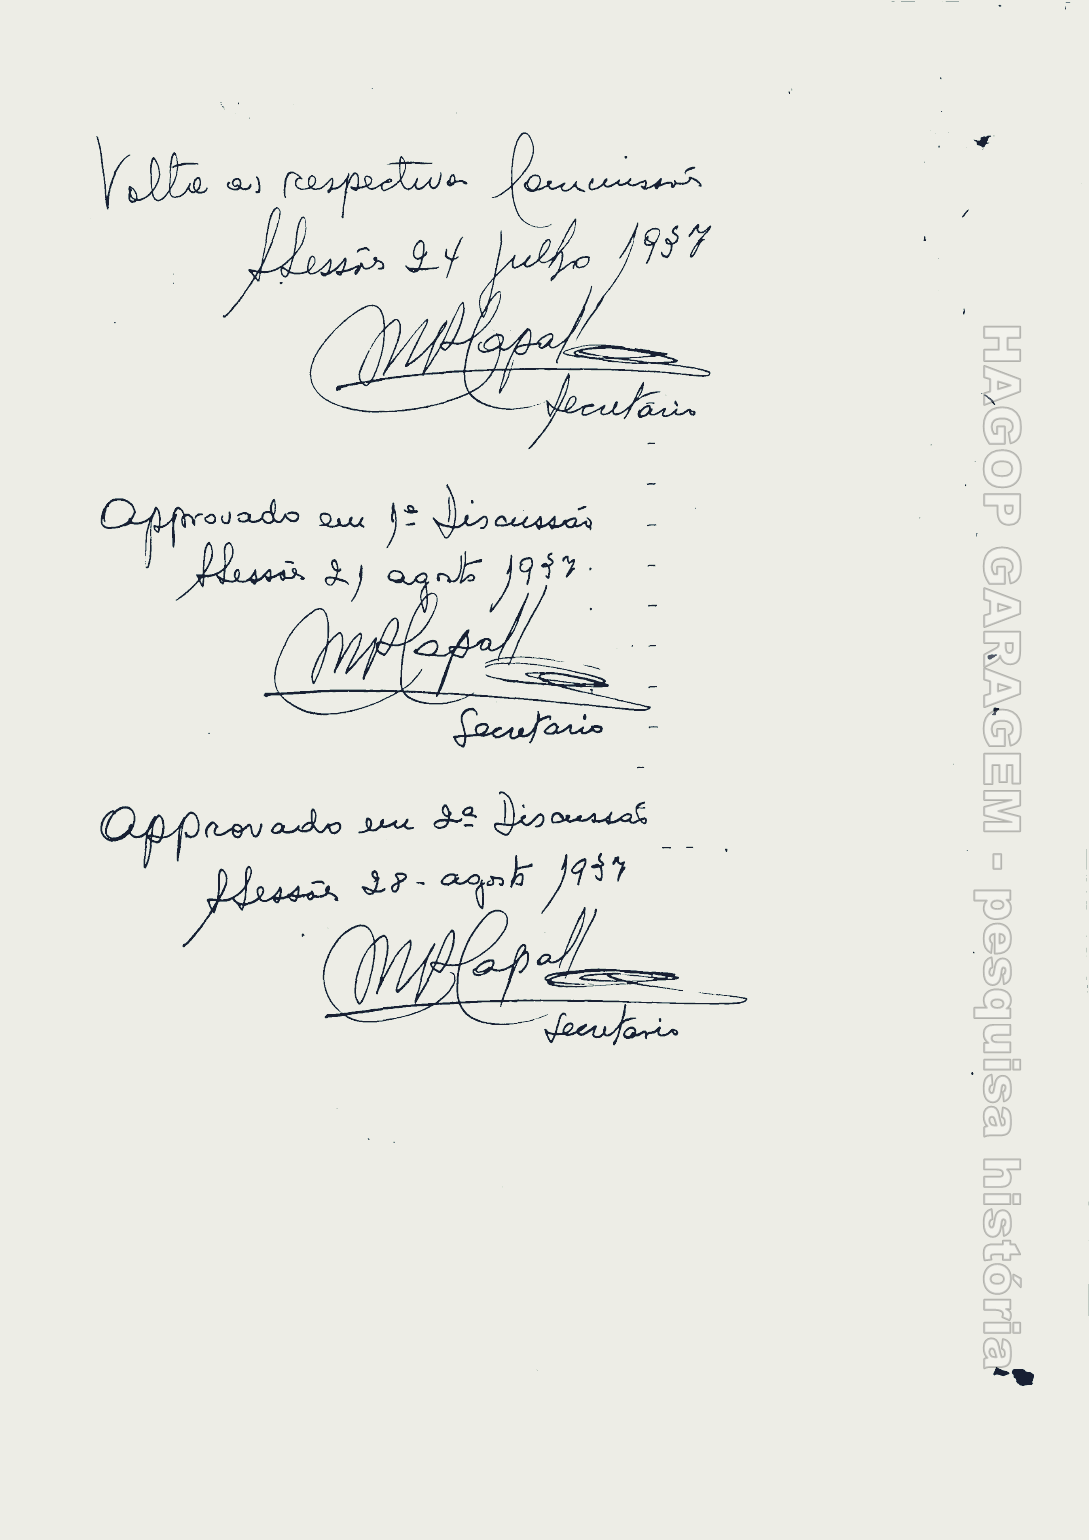 Volta as respectivas Commissões
SSessões 24 julho 1937
Secretario
Approvado em 1ª Discussão
SSessões 21 agosto 1937.
Secretario
Approvado em 2ª Discussão
SSessões 28 - agosto 1937
Secretario
HAGOP GARAGEM - pesquisa história